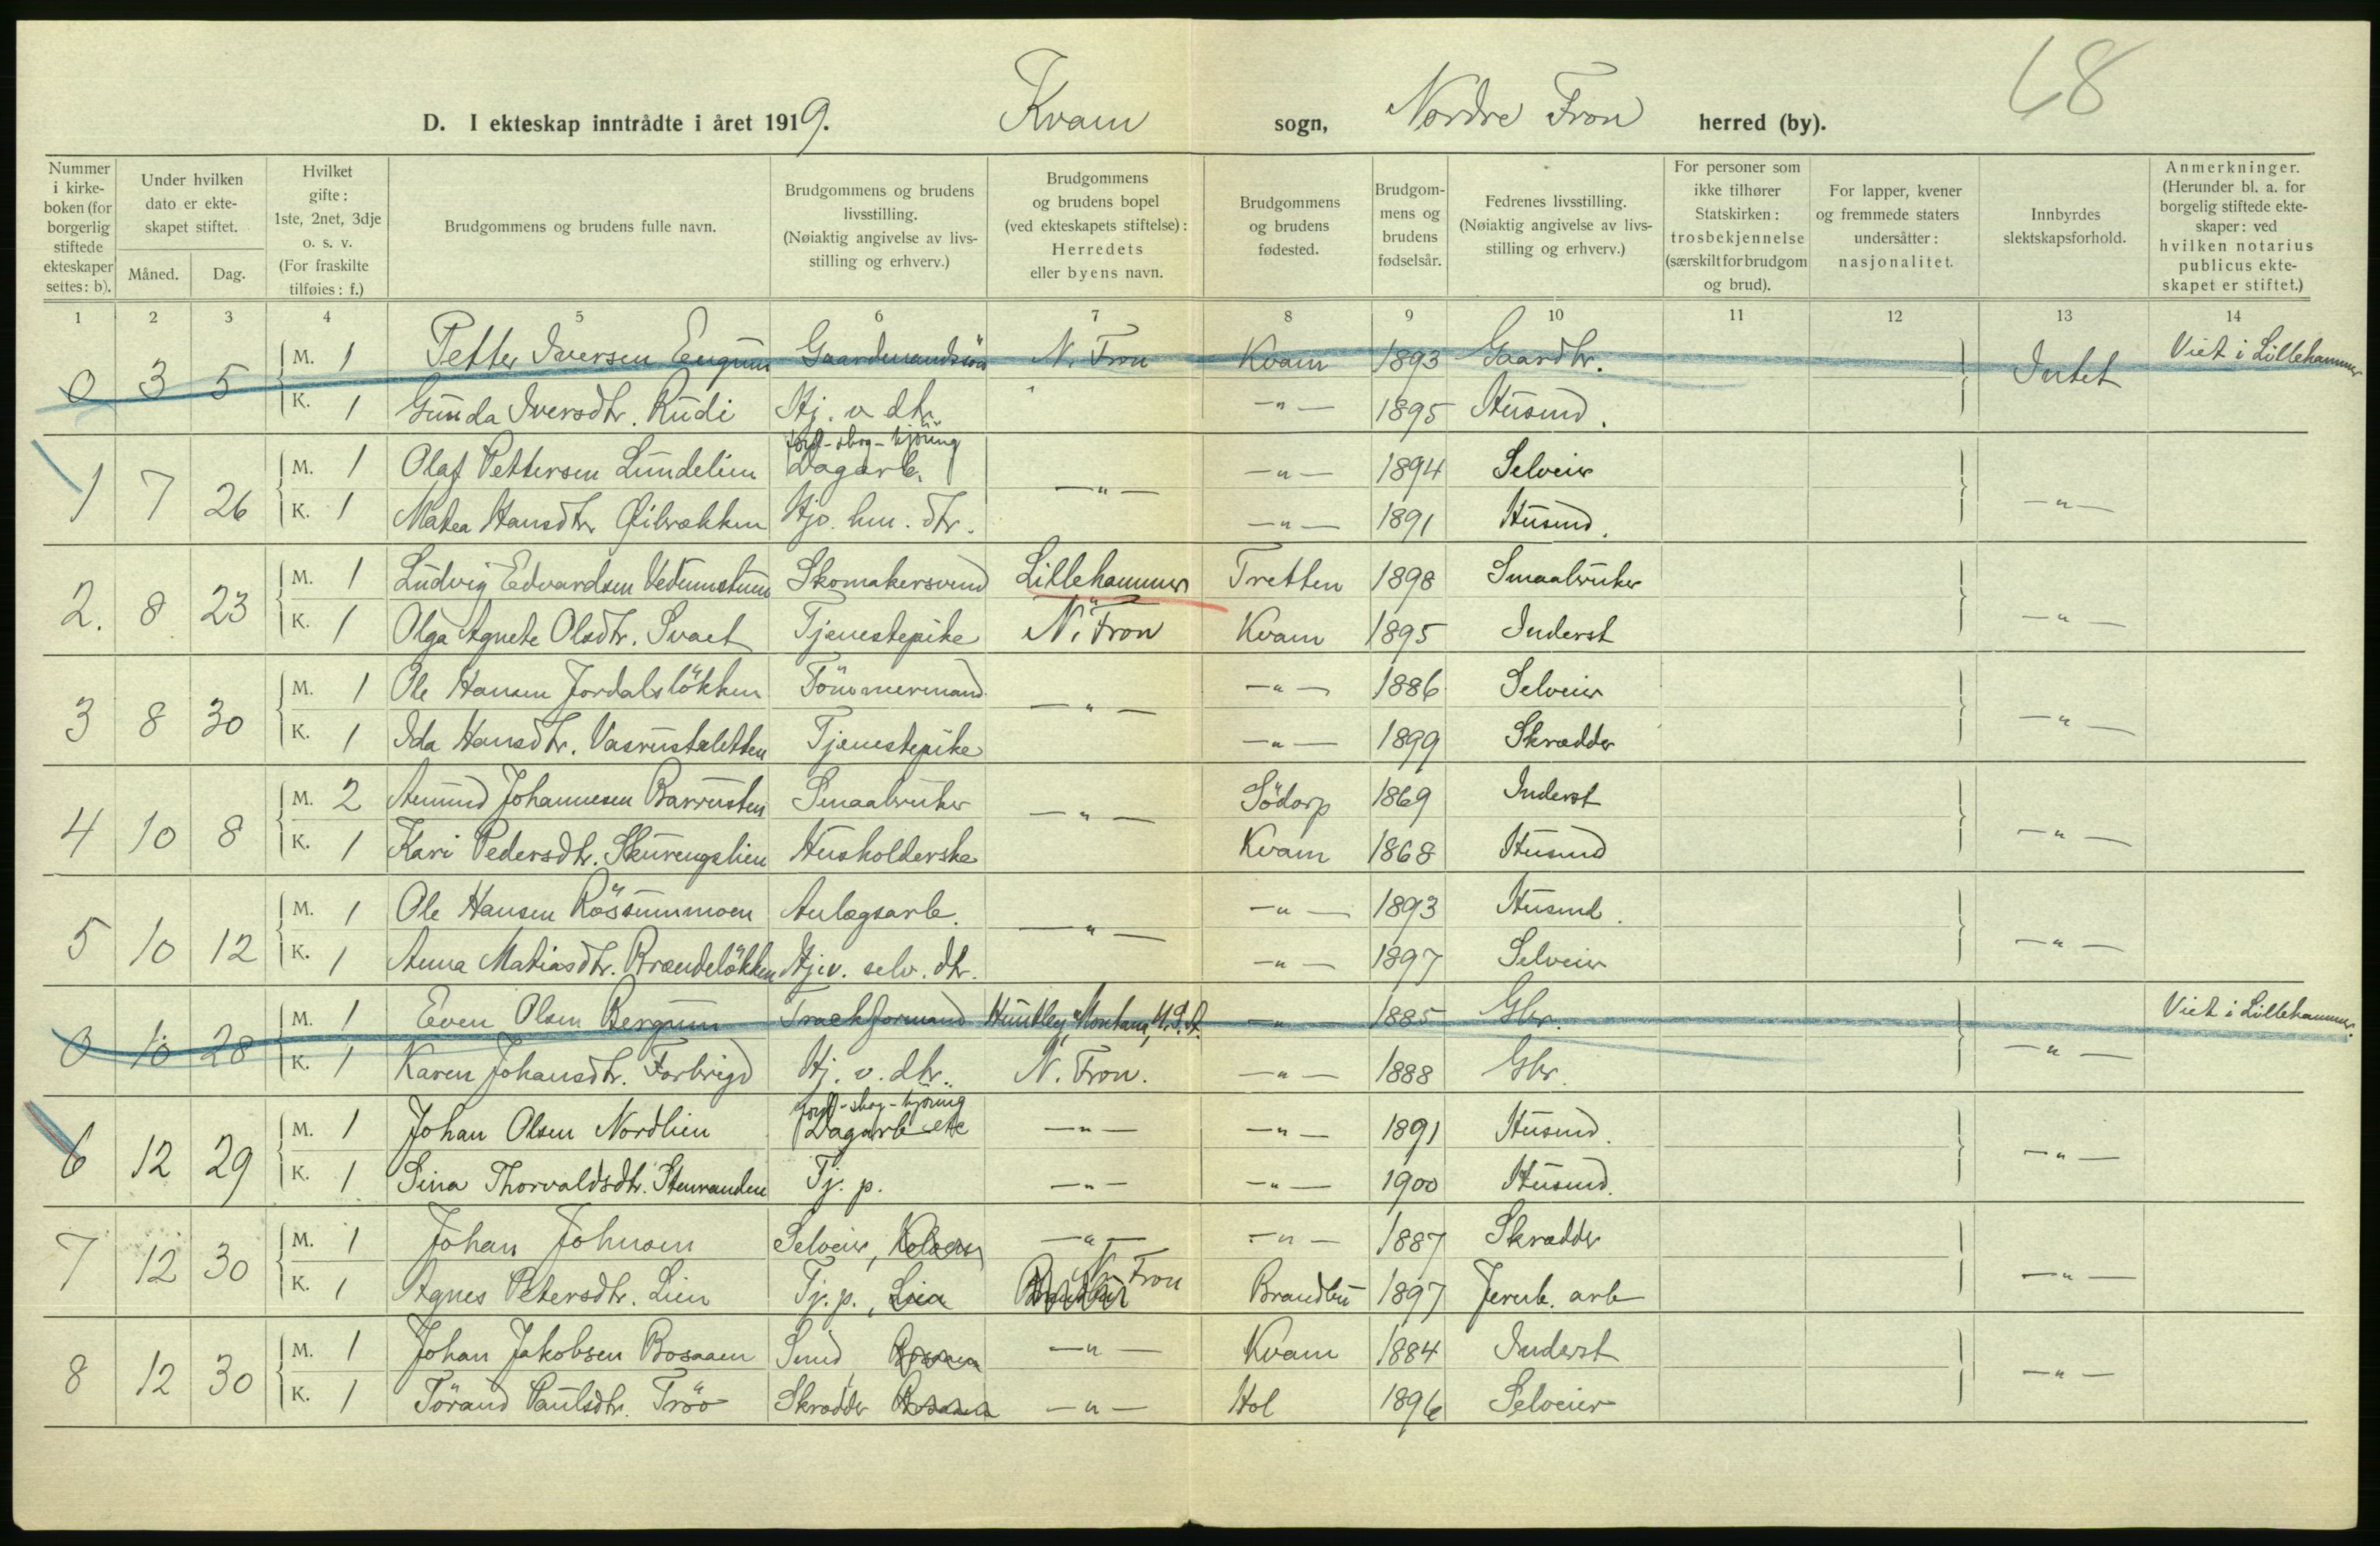 68
D. I ekteskap inntrådte i året 1919. Kvam sogn, Nordre Fron herred (by).
Nummer i kirkeboken (for borgerlig stiftede ekteskaper settes: b). | Under hvilken dato er ekteskapet stiftet. Måned. Dag. | Hvilket gifte: 1ste, 2net, 3dje o. s. v. (For fraskilte tilføies: f.) | Brudgommens og brudens fulle navn. | Brudgommens og brudens livsstilling. (Nøiaktig angivelse av livsstilling og erhverv.) | Brudgommens og brudens bopel (ved ekteskapets stiftelse): Herredets eller byens navn. | Brudgommens og brudens fødested. | Brudgommens og brudens fødselsår. | Fedrenes livsstilling. (Nøiaktig angivelse av livsstilling og erhverv.) | For personer som ikke tilhører Statskirken: trosbekjennelse (særskilt for brudgom og brud). | For lapper, kvener og fremmede staters undersåtter: nasjonalitet. | Innbyrdes slektskapsforhold. | Anmerkninger. (Herunder bl. a. for borgelig stiftede ekteskaper: ved hvilken notarius publicus ekteskapet er stiftet.)
1 2 3 4 5 6 7 8 9 10 11 12 13 14
0 3 5 M. 1 Petter Iversen Engum Gaardmandssön N. Fron Kvam 1893 Gaardbr. Intet Viet i Lillehammer
K. 1 Gunda Iversdtr. Rudi Hj. v. dtr. " -"- 1895 Husmd.
jord-skog-kjöring
1 7 26 M. 1 Olaf Pettersen Lundelien Dagarb. -"- -"- 1894 Selveier -"-
K. 1 Matea Hansdtr Öibrekken Hjv. hm. dtr. -"- 1891 Husmd.
2. 8 23 M. 1 Ludvig Edvardsen Vedumstuen Skomakersvend Lillehammer Tretten 1898 Smaabruker -"-
K. 1 Olga Agnete Olsdtr. Svaet Tjenestepike N. Fron Kvam 1895 Inderst
3 8 30 M. 1 Ole Hansen Jordalslökken Tömmermand -"- -"- 1886 Selveier -"-
K. 1 Ida Hansdtr. Vasrustsletten Tjenestepike -"- 1899 Skrædder
4 10 8 M. 2 Amund Johannesen Barrusten Smaabruker -"- Södorp 1869 Inderst -"-
K. 1 Kari Pedersdtr. Skurengslien Husholderske Kvam 1868 Husmd
5 10 12 M. 1 Ole Hansen Rössummoen Anlegsarb. -"- -"- 1893 Husmd. -"-
K. 1 Anna Matiasdtr. Brændelökken Hjv. selv. dtr. -"- 1897 Selveier
0 10 28 M. 1 Even Olsen Bergum Trackformand Huntley, Montana, U.S.A. -"- 1885 Gbr. -"- Viet i Lillehammer.
K. 1 Karen Johansdtr. Forbrigd Hj. v. dtr. N. Fron. -"- 1888 Gbr.
jord-skog-kjöring
6 12 29 M. 1 Johan Olsen Nordlien Dagarb etc -"- -"- 1891 Husmd. -"-
K. 1 Sina Thorvaldsdtr. Stenranden Tj. p. -"- -"- 1900 Husmd.
7 12 30 M. 1 Johan Johnsen Selveier, -"- -"- 1887 Skrædder -"-
K. 1 Agnes Petersdtr. Lien Tj. p., Lien Brandbu N. Fron Brandbu 1897 Jernb. arb
8 12 30 M. 1 Johan Jakobsen Bosaaen Smed Bosaaen -"- Kvam 1884 Inderst -"-
K. 1 Törand Paulsdtr. Tröo Skrædder Bosaaen -"- Hol 1896 Selveier